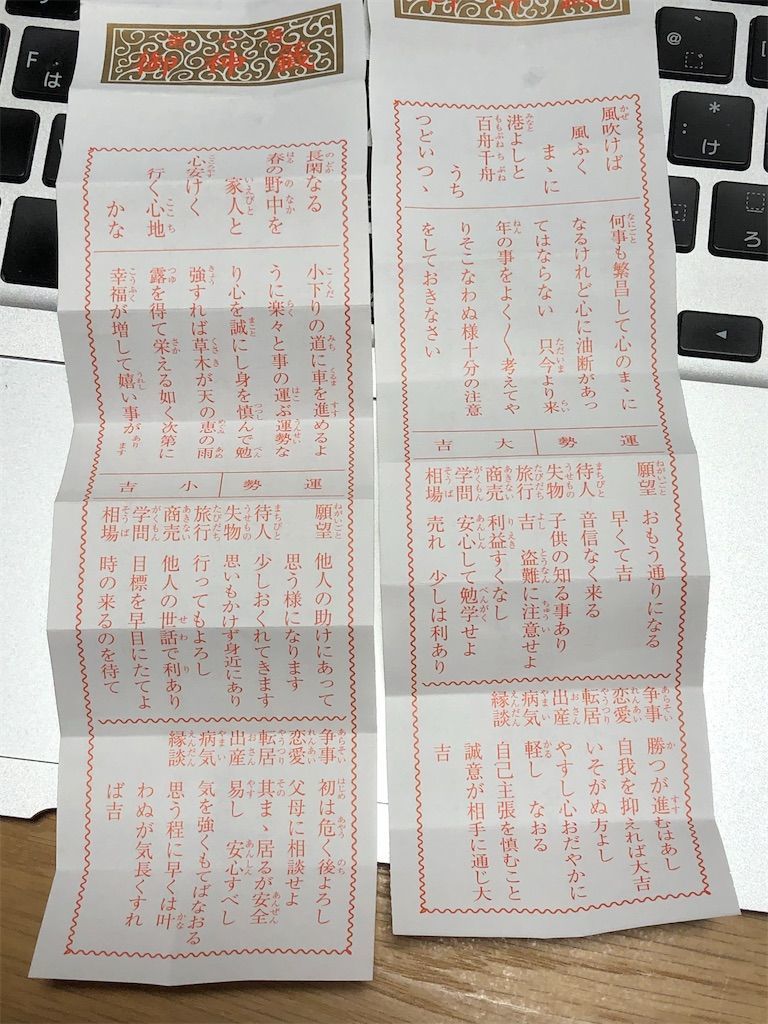 風吹けば
風ふく
まゝに
港よしと
百舟千舟
うち
つどいつゝ
何事も繁昌して心のまゝに
なるけれど心に油断があっ
てはならない 只今より来
年の事をよく〱考えてや
りそこなわぬ様十分の注意
をしておきなさい
運勢 大吉
願望 おもう通りになる
早くて吉
待人 音信なく来る
失物 子供の知る事あり
旅行 吉 盗難に注意せよ
商売 利益すくなし
学問 安心して勉学せよ
相場 売れ 少しは利あり
争事 勝つが進むはあし
恋愛 自我を抑えれば大吉
転居 いそがぬ方よし
出産 やすし心おだやかに
病気 軽し なおる
縁談 自己主張を慎むこと
誠意が相手に通じ大
吉
御神籤
長閑なる
春の野中を
家人と
心安けく
行く心地
かな
小下りの道に車を進めるよ
うに楽々と事の運ぶ運勢な
り心を誠にし身を慎んで勉
強すれば草木が天の恵の雨
露を得て栄える如く次第に
幸福が増して嬉い事が有ます
運勢 小吉
願望 他人の助けにあって
思う様になります
待人 少しおくれてきます
失物 思いもかけず身近にあり
旅行 行ってもよろし
商売 他人の世話で利あり
学問 目標を早目にたてよ
相場 時の来るのを待て
争事 初は危く後よろし
恋愛 父母に相談せよ
転居 其まゝ居るが安全
出産 易し 安心すべし
病気 気を強くもてばなおる
縁談 思う程に早くは叶
わぬが気長くすれ
ば吉
F
は
@
*
け
ろ